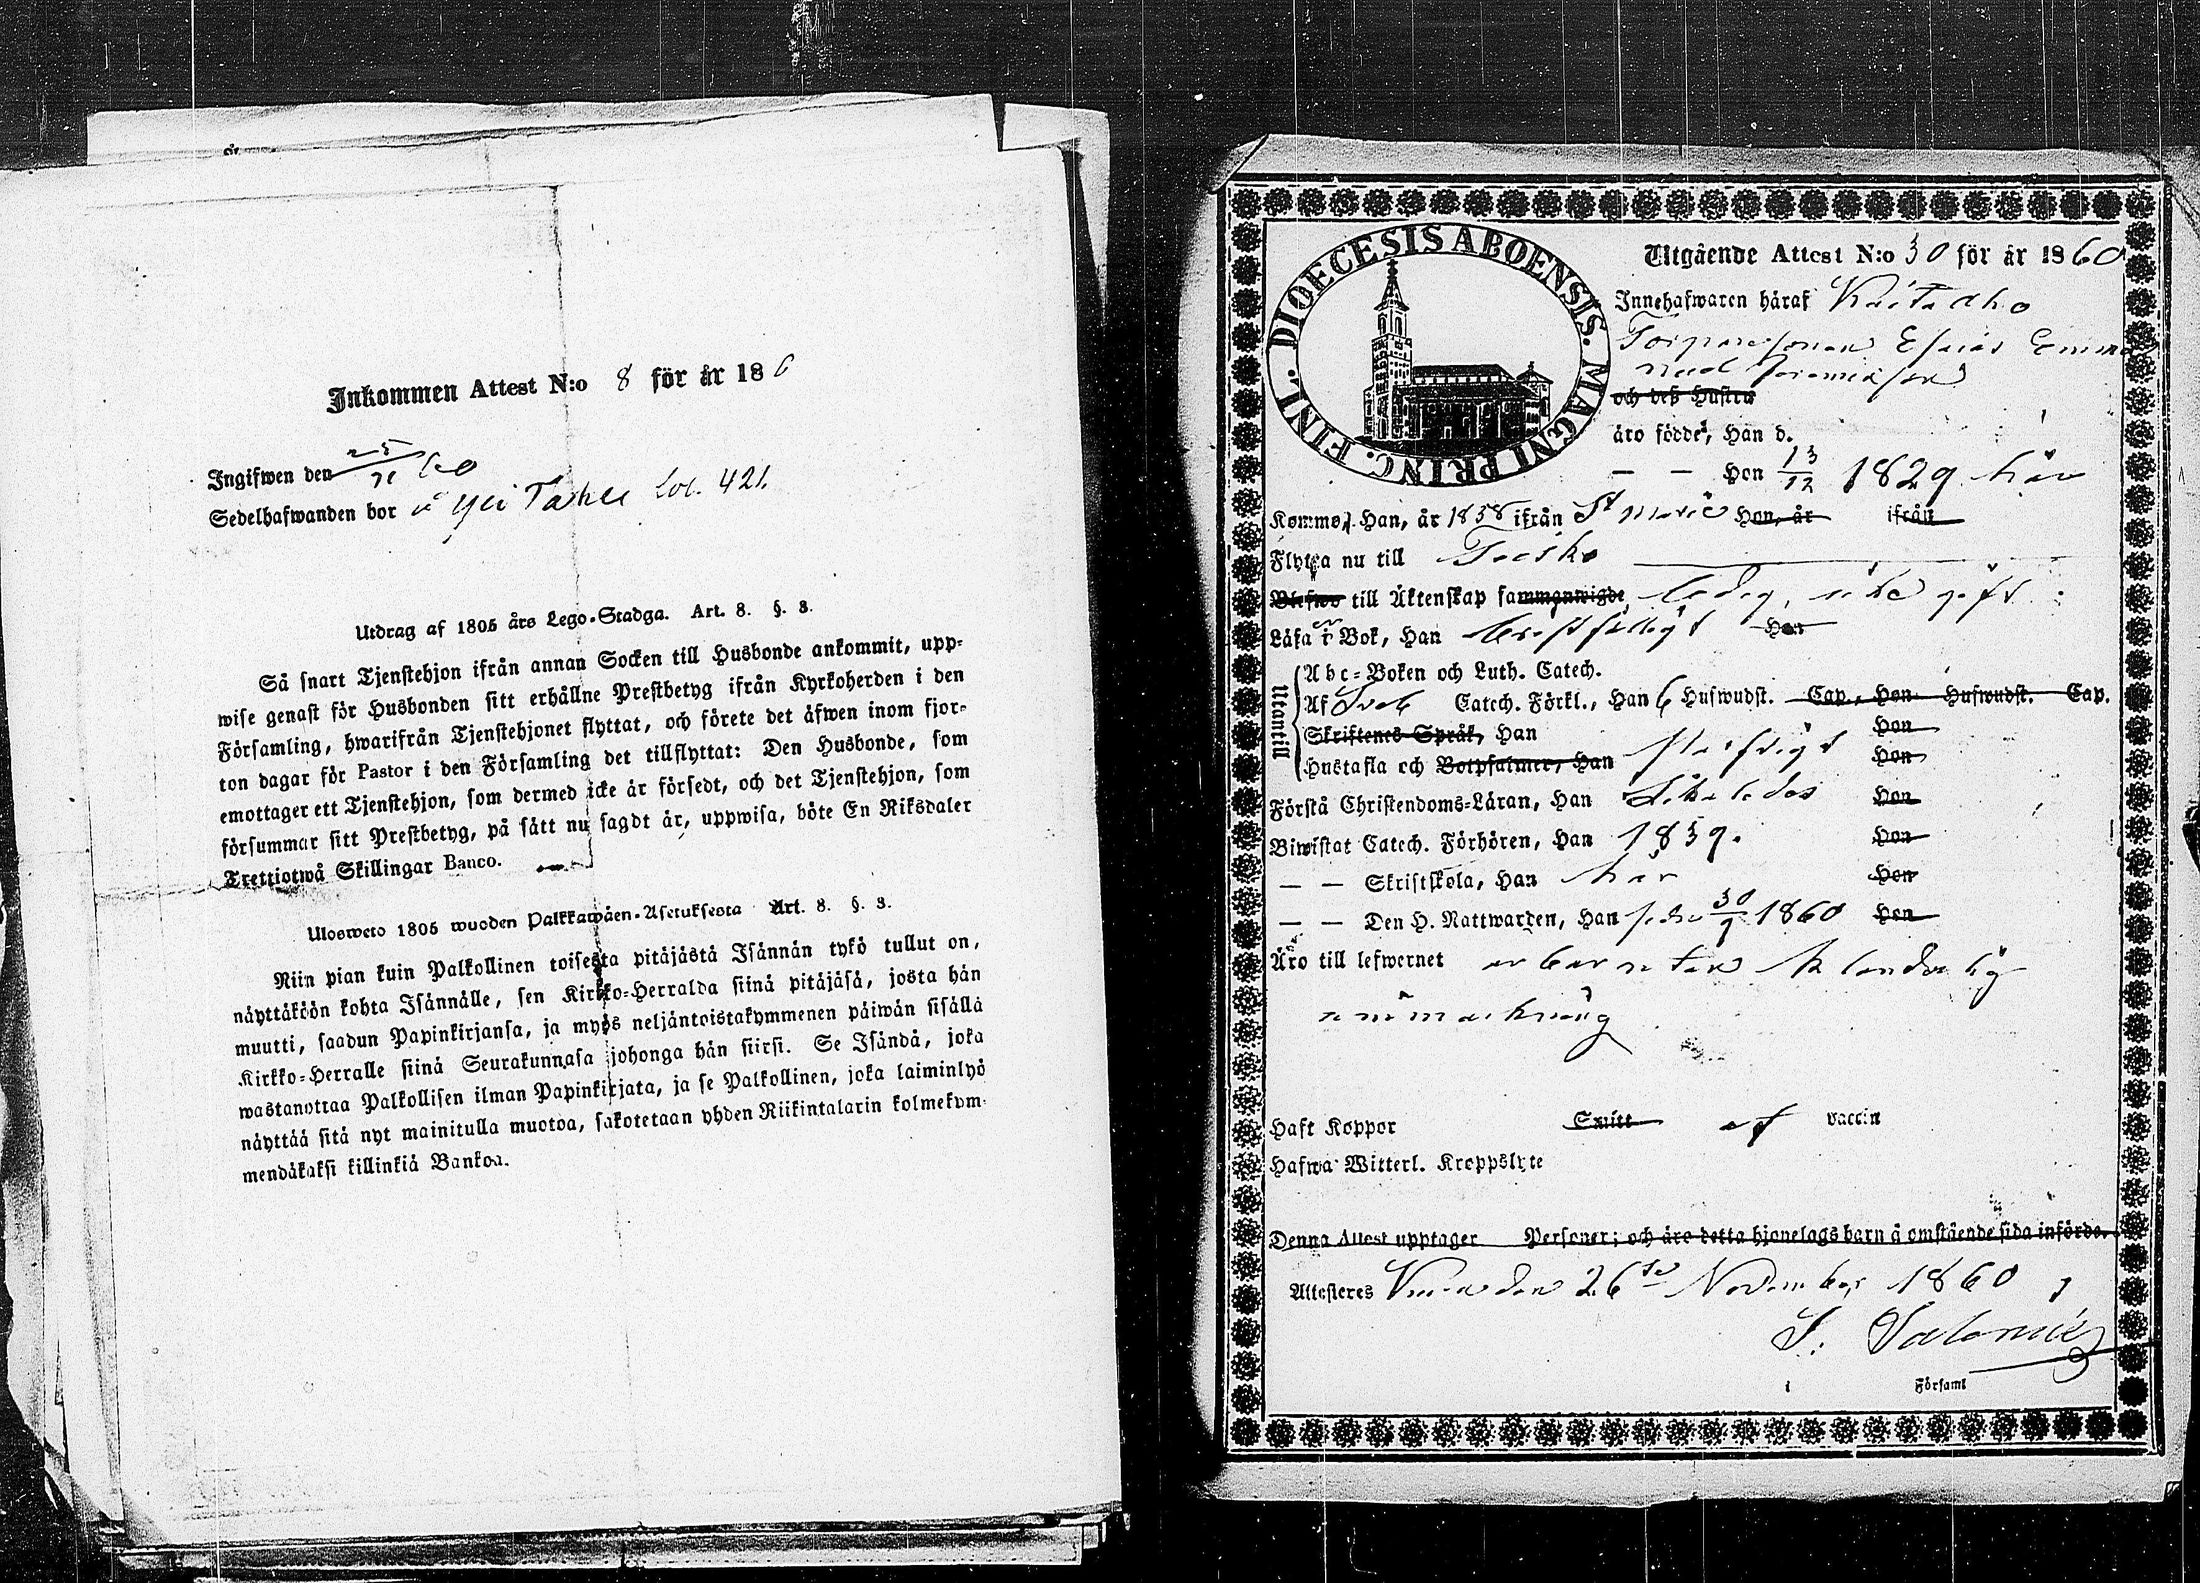 Inkommen Attest N:o 8 för år 186
Ingifwen den 60
Sedelhafwanden bor å Yli 421.
Utdrag af 1805 års Lego-Stadga. Art. 8. §. 3.
Så snart Tjenstehjon ifrån annan Socken till Husbonde ankommit, upp-
wise genast för Husbonden sitt erhållne Prestbetyg ifrån Kyrkoherden i den
Församling, hwarifrån Tjenstehjonet flyttat, och förete det äfwen inom fjor-
ton dagar för Pastor i den Församling det tillflyttat: Den Husbonde, som
emottager ett Tjenstehjon, som dermed icke är försedt, och det Tjenstehjon, som
försummar sitt Prestbetyg, på sätt nu sagdt är, uppwisa, böte En Riksdaler
Trettiotwå Skillingar Banco.
Ulosweto 1805 wuoden Palkkawäen-Asetuksesta Art. 8. §. 3.
Niin pian kuin Palkollinen toisesta pitäjästä Isännän tykö tullut on,
näyttäköön kohta Isännälle, sen Kirkko-Herralda siinä pitäjäsä, josta hän
muutti, saadun Papinkirjansa, ja myös neljäntoistakymmenen päiwän sisällä
Kirkko-Herralle siinä Seurakunnasa johonga hän siirsi. Se Isändä, joka
wastanottaa Palkollisen ilman Papinkirjata, ja se Palkollinen, joka laiminlyö
näyttää sitä nyt mainitulla muotoa, sakotetaan yhden Riikintalarin kolmekym-
mendäkaksi killinkiä Bankoa.
DIOECESIS ABOENSIS. MAGNI PRINC. FINL.
Utgående Attest N:o 30 för år 1860
Innehafwaren häraf
och deß Hustru
äro födde, Han d.
— — Hon 13/12 1829 här
Kommo, Han, år 1858 ifrån St Marie Hon, år ifrån
Flytta nu till Teisko
Blefwo till Äktenskap sammanwigde ledig, icke gift
Läsa i Bok, Han Hon
Utantill
Abc-Boken och Luth. Catech.
Af Sveb Catech. Förkl., Han 6 Hufwudst. Cap., Hon Hufwudst. Cap.
Skriftenes Språk, Han Hon
Hustafla och Botpsalmer, Han Hon
Förstå Christendoms-Läran, Han Hon
Biwistat Catech. Förhören, Han 1859. Hon
— — Skriftskola, Han här Hon
— — Den H. Nattwarden, Han 1860 Hon
Äro till lefwernet
anmärkning
Haft Koppor Smitt af vaccin
Hafwa Witterl. Kroppslyte
Denna Attest upptager Personer; och äro detta hjonelags barn å omstående sida införda.
Attesteres den 26te November 1860
i Församl